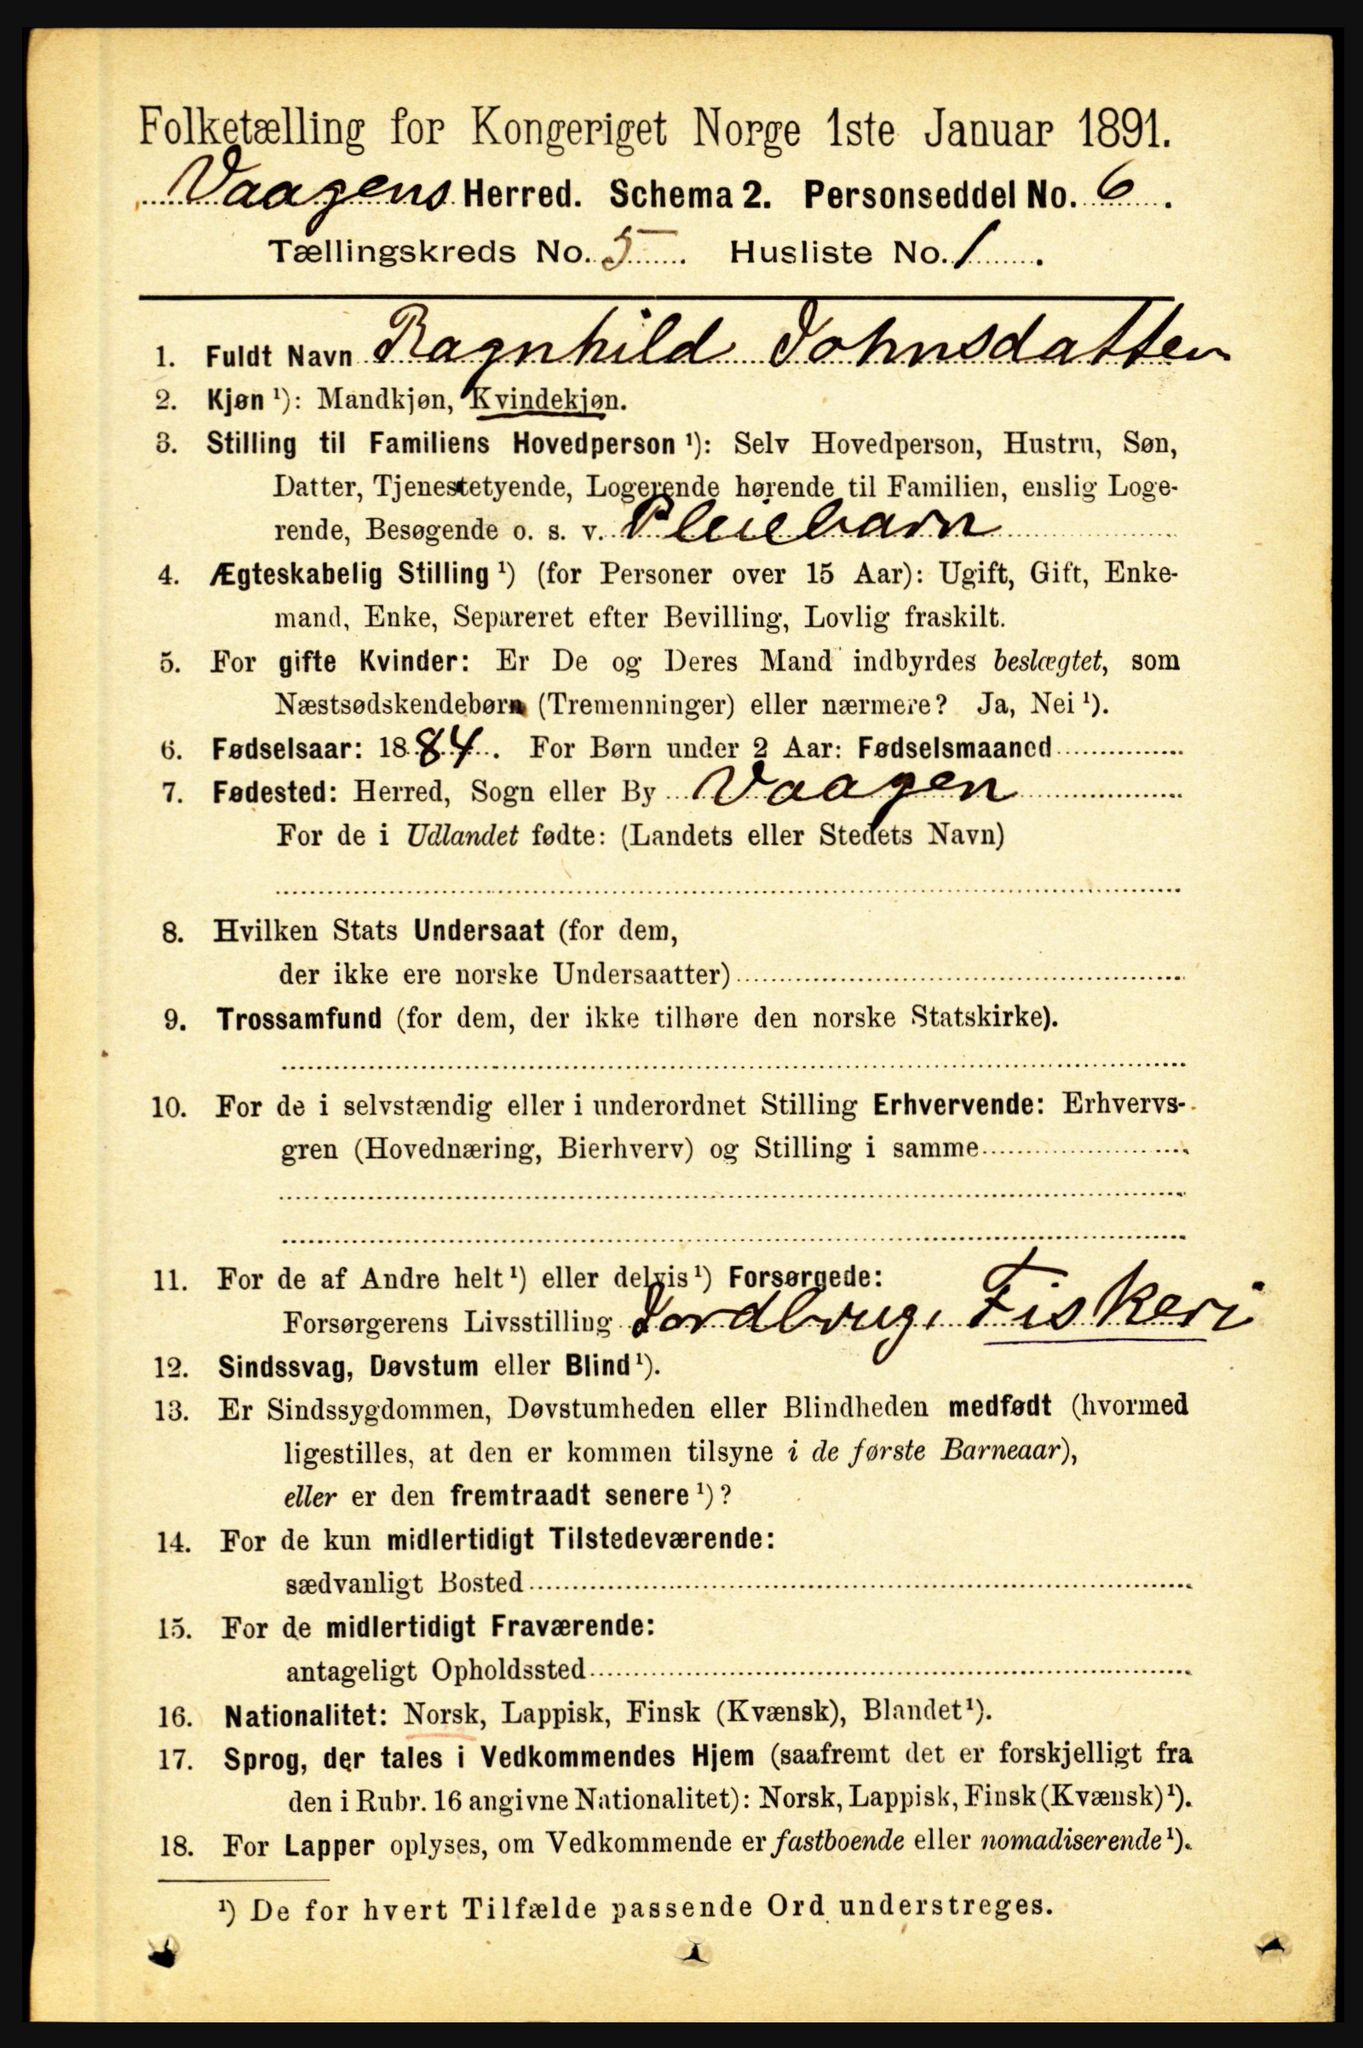 Folketælling for Kongeriget Norge 1ste Januar 1891.
Vaagens Herred. Schema 2. Personseddel No. 6.
Tællingskreds No. 5. Husliste No. 1.
1. Fuldt Navn Ragnhild Johnsdatter
2. Kjøn ¹): Mandkjøn, Kvindekjøn.
3. Stilling til Familiens Hovedperson ¹): Selv Hovedperson, Hustru, Søn,
Datter, Tjenestetyende, Logerende hørende til Familien, enslig Loge-
rende, Besøgende o. s. v. Pleiebarn
4. Ægteskabelig Stilling ¹) (for Personer over 15 Aar): Ugift, Gift, Enke-
mand, Enke, Separeret efter Bevilling, Lovlig fraskilt.
5. For gifte Kvinder: Er De og Deres Mand indbyrdes beslægtet, som
Næstsødskendebørn (Tremenninger) eller nærmere? Ja, Nei ¹).
6. Fødselsaar: 1884. For Børn under 2 Aar: Fødselsmaaned
7. Fødested: Herred, Sogn eller By Vaagen
For de i Udlandet fødte: (Landets eller Stedets Navn)
8. Hvilken Stats Undersaat (for dem,
der ikke ere norske Undersaatter)
9. Trossamfund (for dem, der ikke tilhøre den norske Statskirke).
10. For de i selvstændig eller i underordnet Stilling Erhvervende: Erhvervs-
gren (Hovednæring, Bierhverv) og Stilling i samme
11. For de af Andre helt ¹) eller delvis ¹) Forsørgede:
Forsørgerens Livsstilling Jordbrug, Fiskeri
12. Sindssvag, Døvstum eller Blind ¹).
13. Er Sindssygdommen, Døvstumheden eller Blindheden medfødt (hvormed
ligestilles, at den er kommen tilsyne i de første Barneaar),
eller er den fremtraadt senere ¹)?
14. For de kun midlertidigt Tilstedeværende:
sædvanligt Bosted
15. For de midlertidigt Fraværende:
antageligt Opholdssted
16. Nationalitet: Norsk, Lappisk, Finsk (Kvænsk), Blandet ¹).
17. Sprog, der tales i Vedkommendes Hjem (saafremt det er forskjelligt fra
den i Rubr. 16 angivne Nationalitet): Norsk, Lappisk, Finsk (Kvænsk) ¹).
18. For Lapper oplyses, om Vedkommende er fastboende eller nomadiserende ¹).
¹) De for hvert Tilfælde passende Ord understreges.